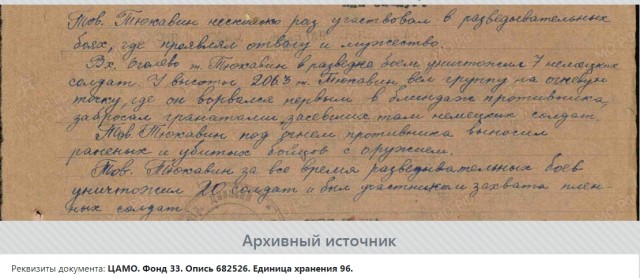 Тов. Тюкавин несколько раз участвовал в разведывательных
боях, где проявлял отвагу и мужество.
В х. Оголево т. Тюкавин в разведке боем уничтожил 7 немецких
солдат. У высоты 206.3 т. Тюкавин вел группу на огневую
точку, где он ворвался первым в блиндаж противника,
забросал гранатами, засевших там немецких солдат.
Тов. Тюкавин под огнем противника выносил
раненых и убитых бойцов с оружием.
Тов. Тюкавин за все время разведывательных боев
уничтожил 20 солдат и был участником захвата плен-
ных солдат
Архивный источник
Реквизиты документа: ЦАМО. Фонд 33. Опись 682526. Единица хранения 96.